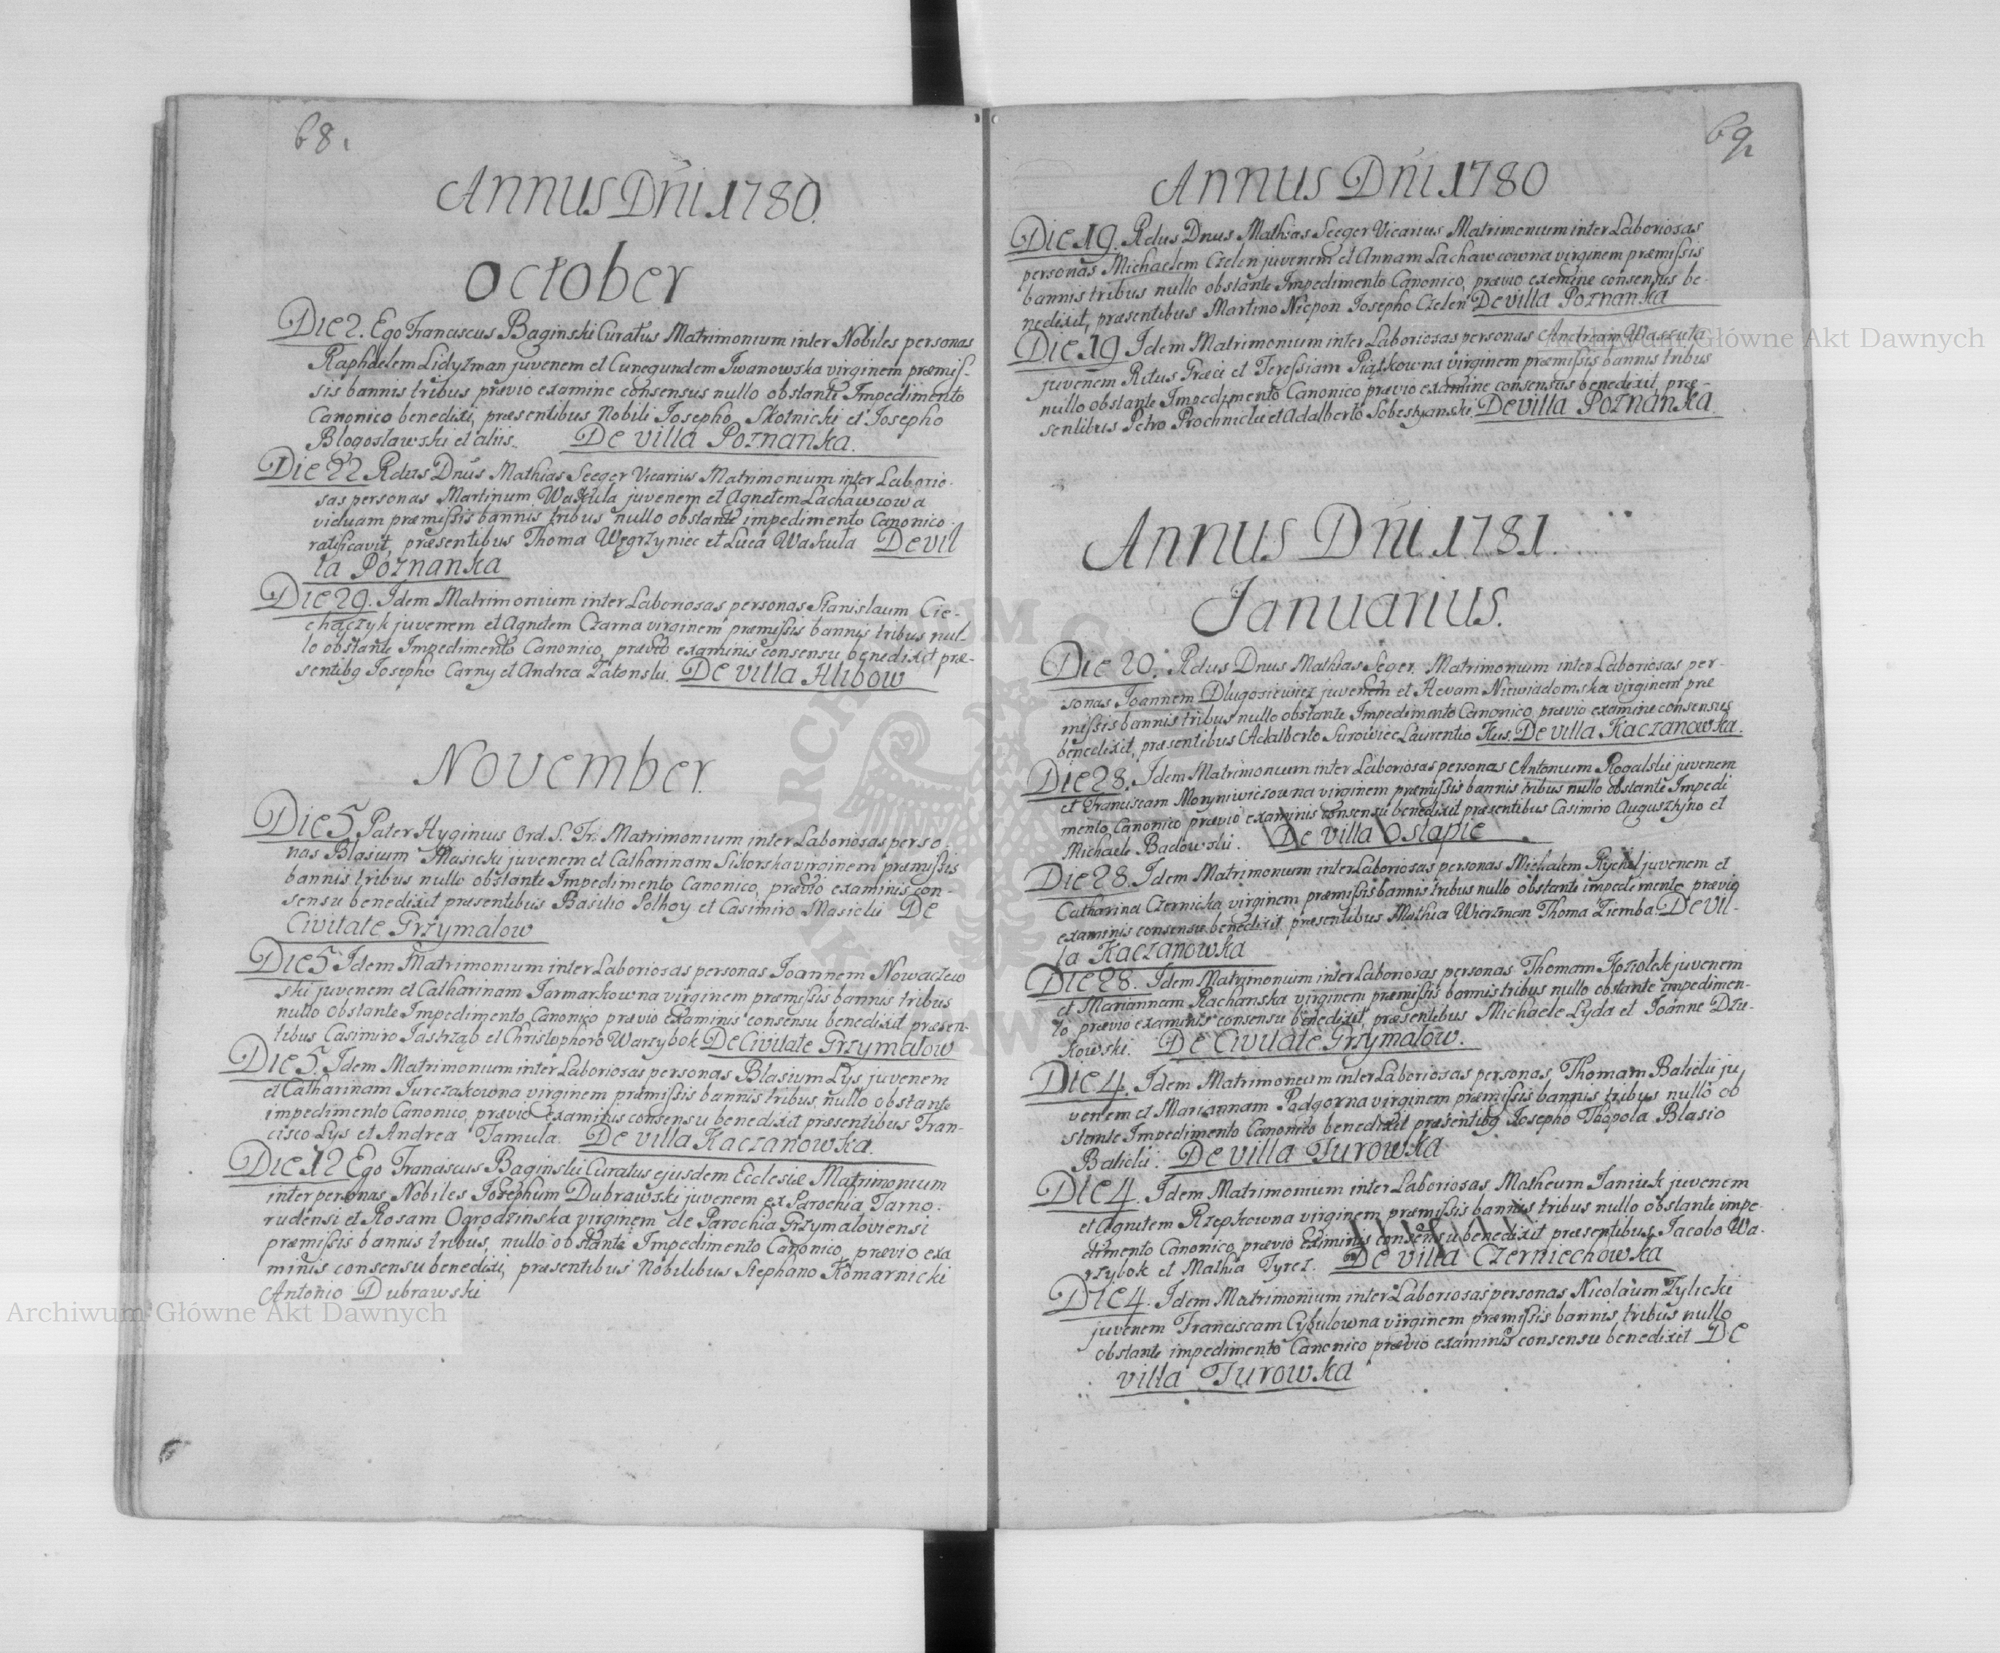 68.
Annus Dñi 1780.
October
Die 2. Ego Franciscus Baginski Curatus Matrimonium inter Nobiles personas
Raphaelem Lidyzman juvenem et Cunegundem Iwanowska virginem præmis-
sis bannis tribus prævio examine consensus nullo obstante Impedimento
Canonico benedixi, præsentibus Nobili Josepho Skotnicki et Josepho
Blogoslawski et aliis. De villa Poznanka.
Die 22 Rdus Dnus Mathias Seeger Vicarius Matrimonium inter Laborio-
sas personas Martinum Wakula juvenem et Agnetem Lachawcowa
viduam præmissis bannis tribus nullo obstante impedimento Canonico
ratificavit, præsentibus Thoma Węgrzyniec et Luca Wakula De vil
la Poznanka
Die 29. Idem Matrimonium inter Laboriosas personas Stanislaum Cie-
chączyk juvenem et Agnetem Czarna virginem præmissis bannis tribus nul-
lo obstante Impedimento Canonico, prævio examinis consensu benedixit præ-
sentibg Josepho Carny et Andrea Zatonski. De villa Hlibow
November.
Die 5. Pater Hyginus Ord. S. Tr. Matrimonium inter Laboriosas perso-
nas Blasium Masicki juvenem et Catharinam Sikorska virginem præmissis
bannis tribus nullo obstante Impedimento Canonico, prævio examinis con
sensu benedixit præsentibus Basilio Solhoy et Casimiro Masicki De
Civitate Grzymalow
Die 5 Idem Matrimonium inter Laboriosas personas Joannem Nowaczew
ski juvenem et Catharinam Jarmarkowna virginem præmissis bannis tribus
nullo obstante Impedimento Canonico prævio examinis consensu benedixit præsen-
tibus Casimiro Jastrząb et Christophoro Warzybok De Civitate Grzymalow
Die 5. Idem Matrimonium inter Laboriosas personas Blasium Lys juvenem
et Catharinam Jurczakowna virginem præmissis bannis tribus, nullo obstante
impedimento Canonico, prævio examinus consensu benedixit præsentibus Fran-
cisco Lys et Andrea Tamula. De villa Kaczanowka.
Die 12 Ego Franciscus Baginski Curatus ejusdem Ecclesiæ Matrimonium
inter personas Nobiles Josephum Dubrawski juvenem ex Parochia Tarno-
rudensi et Rosam Ogrodzinska virginem de Parochia Grzymaloviensi
præmissis bannis tribus, nullo obstante Impedimento Canonico, prævio exa
minis consensu benedixi, præsentibus Nobilibus Stephano Komarnicki
Antonio Dubrawski
69.
Annus Dñi 1780
Die 19. Rdus Dnus Mathias Seeger Vicarius Matrimonium inter Laboriosas
personas Michaelem Czelen juvenem et Annam Lachawcowna virginem præmissis
bannis tribus nullo obstante Impedimento Canonico, prævio examine consensus be-
nedixit, præsentibus Martino Niepon Josepho Czelen De villa Poznanka
Die 19 Idem Matrimonium inter Laboriosas personas Andream
juvenem Ritus Græci et Teressiam Piątkowna virginem præmissis bannis tribus
nullo obstante Impedimento Canonico prævio examine consensus benedixit, præ-
sentibus Petro Prochnicki et Adalberto Sobestyanski De villa Poznanka
Annus Dñi 1781.
Januarius.
Die 20. Rdus Dnus Mathias Seger Matrimonium inter Laboriosas per-
sonas Joannem Dlugosiewicz juvenem et Hevam Niewiadomska virginem præ
missis bannis tribus nullo obstante Impedimento Canonico prævio examine consensus
benedixit, præsentibus Adalberto Surowiec Laurentio Kus. De villa Kaczanowka.
Die 28. Idem Matrimonium inter Laboriosas personas Antonium Rogalski juvenem
et Franciscam Moryniwiczowna virginem præmissis bannis tribus nullo obstante Impedi
mento Canonico prævio examinis consensu benedixit præsentibus Casimiro Augusztyno et
Michaele Badowski. De villa Ostapie
Die 28. Idem Matrimonium inter Laboriosas personas Michalem juvenem et
Catharina Czernicka virginem præmissis bannis tribus nullo obstante impedemento prævio
examinis consensu benedixit præsentibus Mathia Wierzman Thoma Ziemba De vil-
la Kaczanowka
Die 28. Idem Matrimonium inter Laboriosas personas Thomam Koziolek juvenem
et Mariannam Rachanska virginem præmissis bannis tribus nullo obstante impedimen-
to prævio examinis consensu benedixit, præsentibus Michaele Lyda et Joanne Dzu-
kowski. De Civitate Grzymalow.
Die 4. Idem Matrimonium inter Laboriosas personas, Thomam Balicki ju
venem et Mariannam Padgorna virginem præmissis bannis tribus nullo ob
stante Impedimento Canonico benedixit præsentibg Josepho Thopola Blasio
Balicki. De villa Turowka
Die 4. Idem Matrimonium inter Laboriosas Matheum Janiuk juvenem
et Agnetem Rzepkowna virginem præmissis bannis tribus nullo obstante impe-
dimento Canonico prævio Examinis consensu benedixit præsentibus Jacobo Wa-
rzybok et Mathia Tyrcz. De villa Czerniechowka
Die 4. Idem Matrimonium inter Laboriosas personas Nicolaum Zylicki
juvenem Franciscam Cybulowna virginem præmissis bannis tribus nullo
obstante impedimento Canonico prævio examinis consensu benedixit De
villa Turowka
Archiwum Główne Akt Dawnych
Archiwum Główne Akt Dawnych